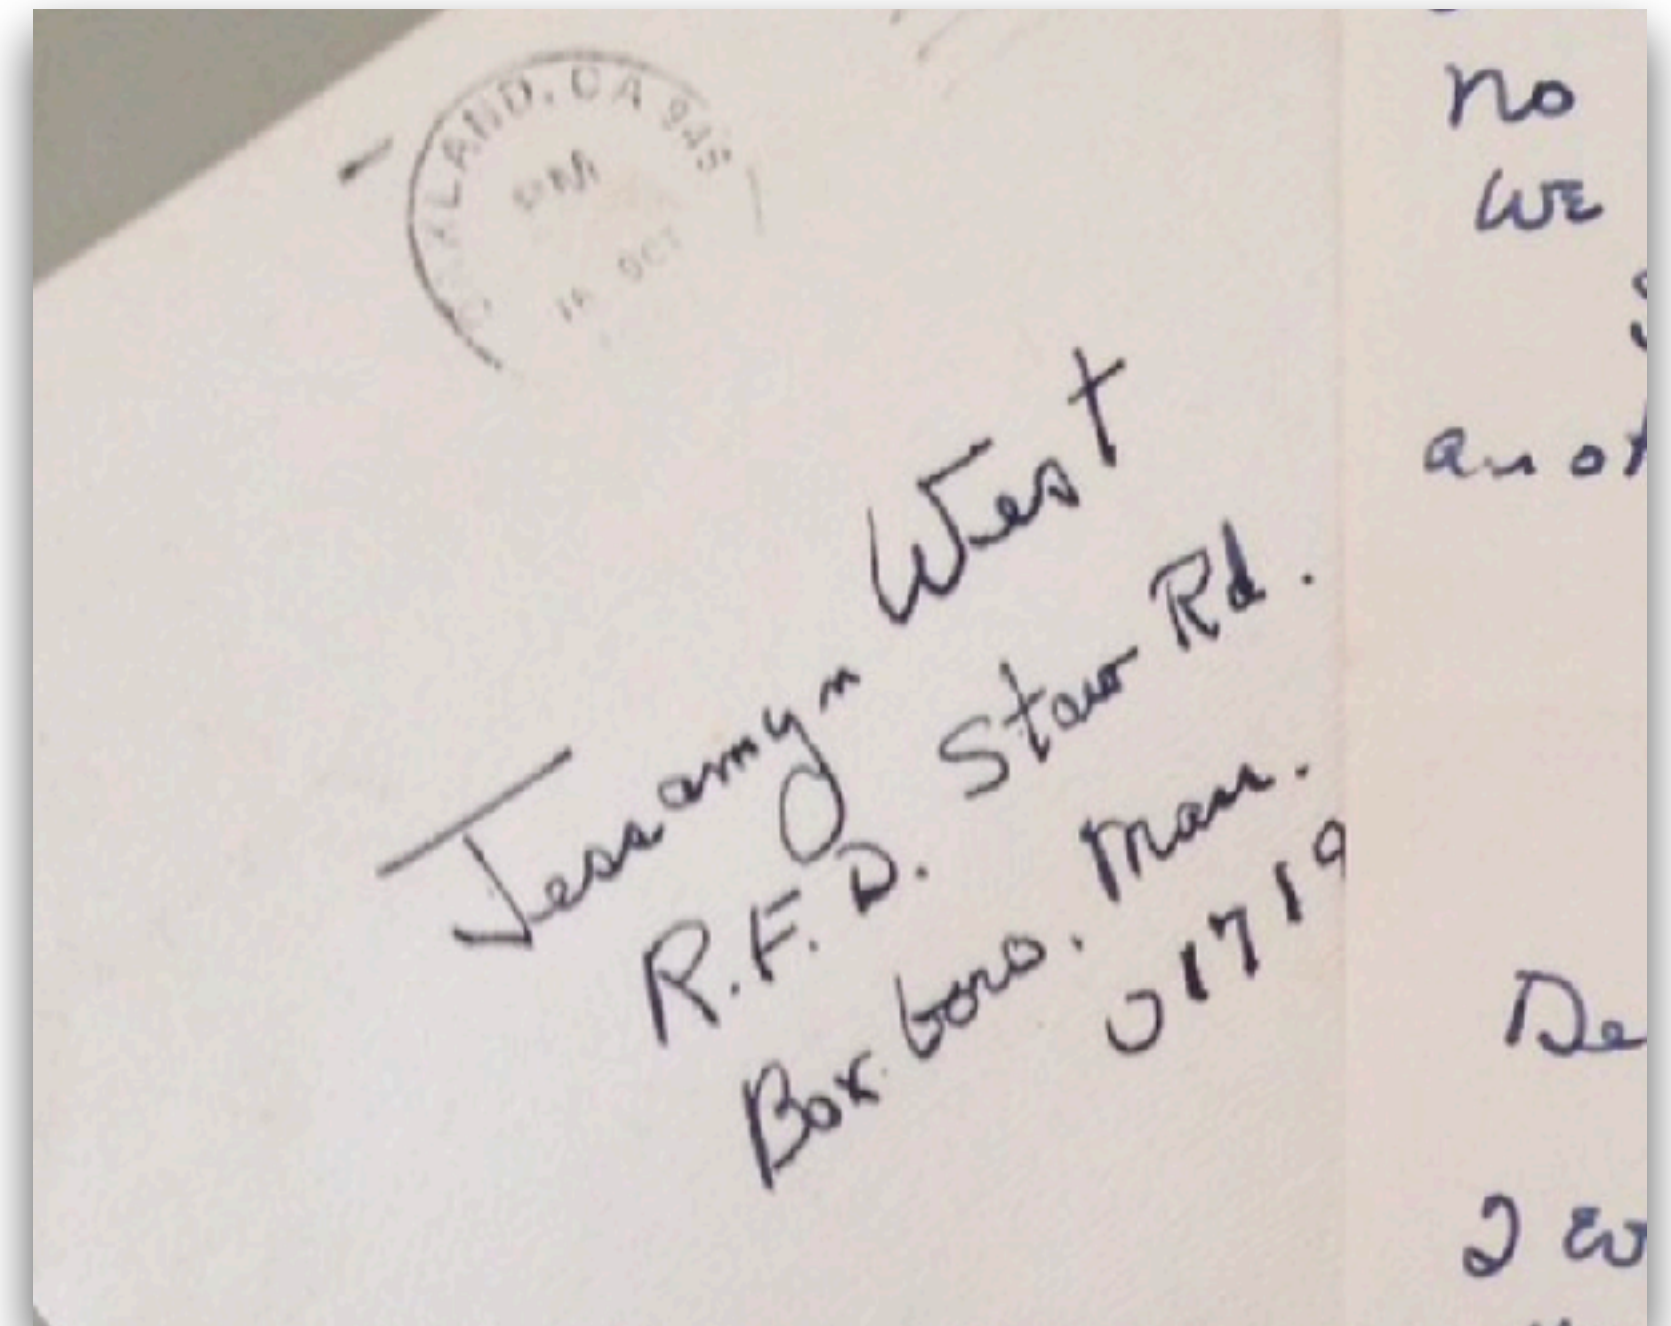 OAKLAND, CA 946
PM
16 OCT
Jessamyn West
R.F.D. Stow Rd.
Boxboro. Mass.
01719
No
WE
De
I